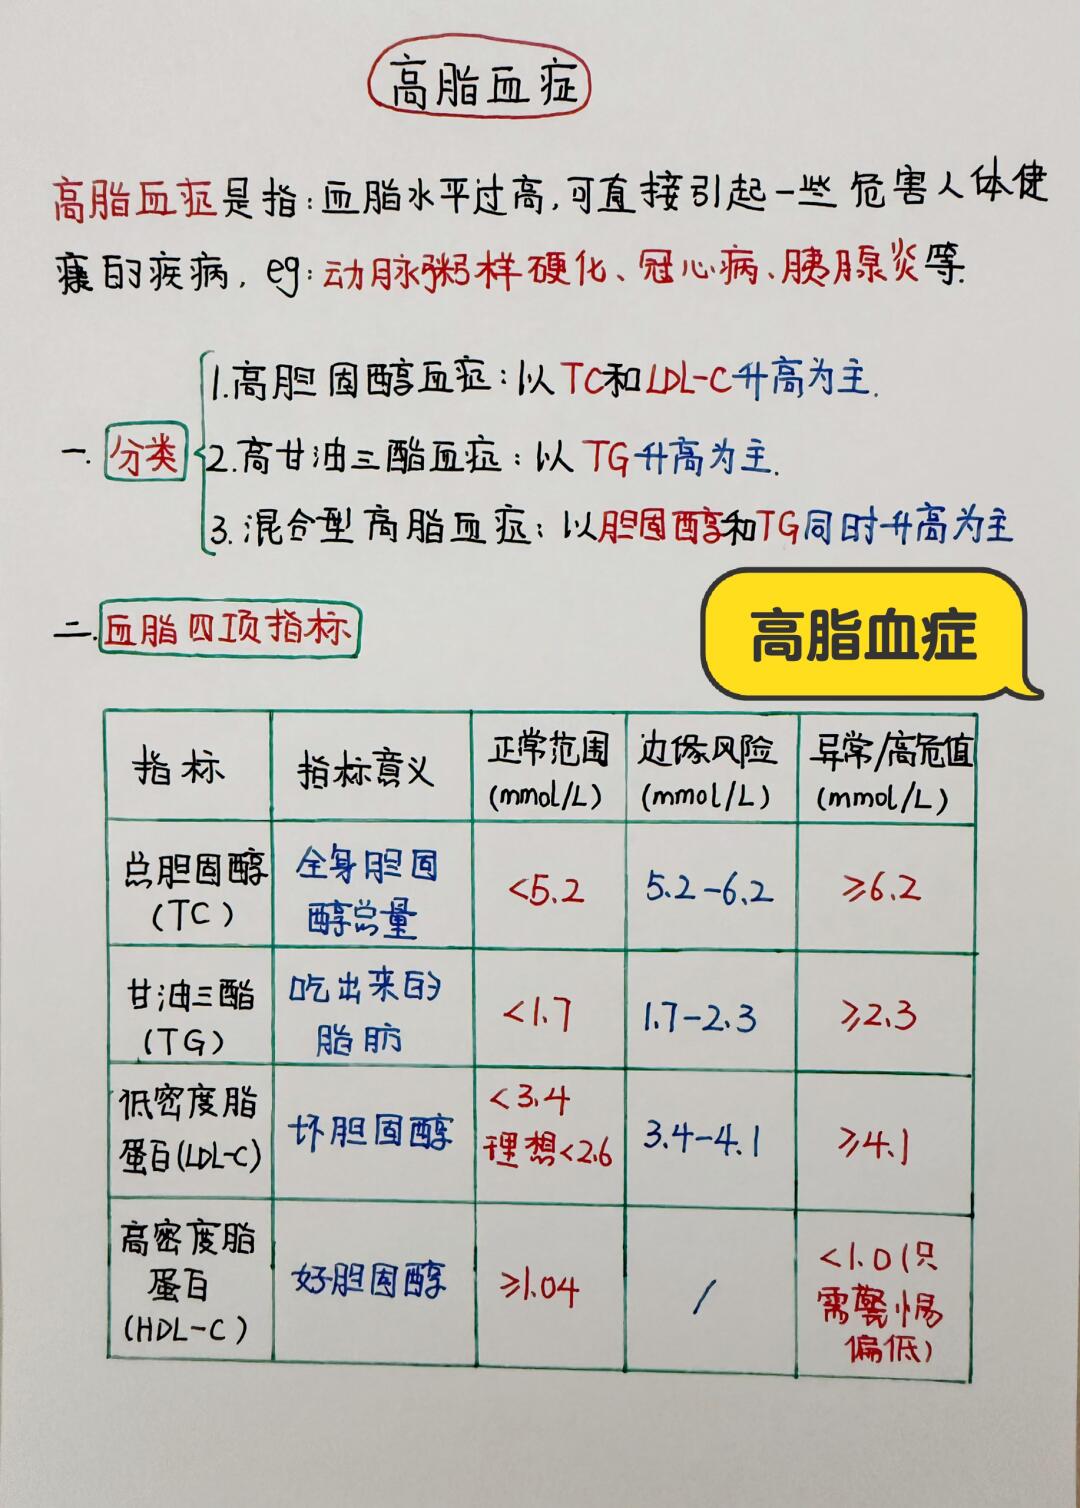 高脂血症
高脂血症是指:血脂水平过高,可直接引起一些危害人体健
康的疾病,eg:动脉粥样硬化、冠心病、胰腺炎等.
一.分类
1.高胆固醇血症:以TC和LDL-C升高为主.
2.高甘油三酯血症:以TG升高为主.
3.混合型高脂血症:以胆固醇和TG同时升高为主
二.血脂四项指标
高脂血症
指标 指标意义 正常范围 边缘风险 异常/高危值
(mmol/L) (mmol/L) (mmol/L)
总胆固醇 全身胆固 <5.2 5.2-6.2 ≥6.2
(TC) 醇总量
甘油三酯 吃出来的 <1.7 1.7-2.3 ≥2.3
(TG) 脂肪
低密度脂 坏胆固醇 <3.4 3.4-4.1 ≥4.1
蛋白(LDL-C) 理想<2.6
高密度脂 好胆固醇 ≥1.04 / <1.0(只
蛋白 需警惕
(HDL-C) 偏低)